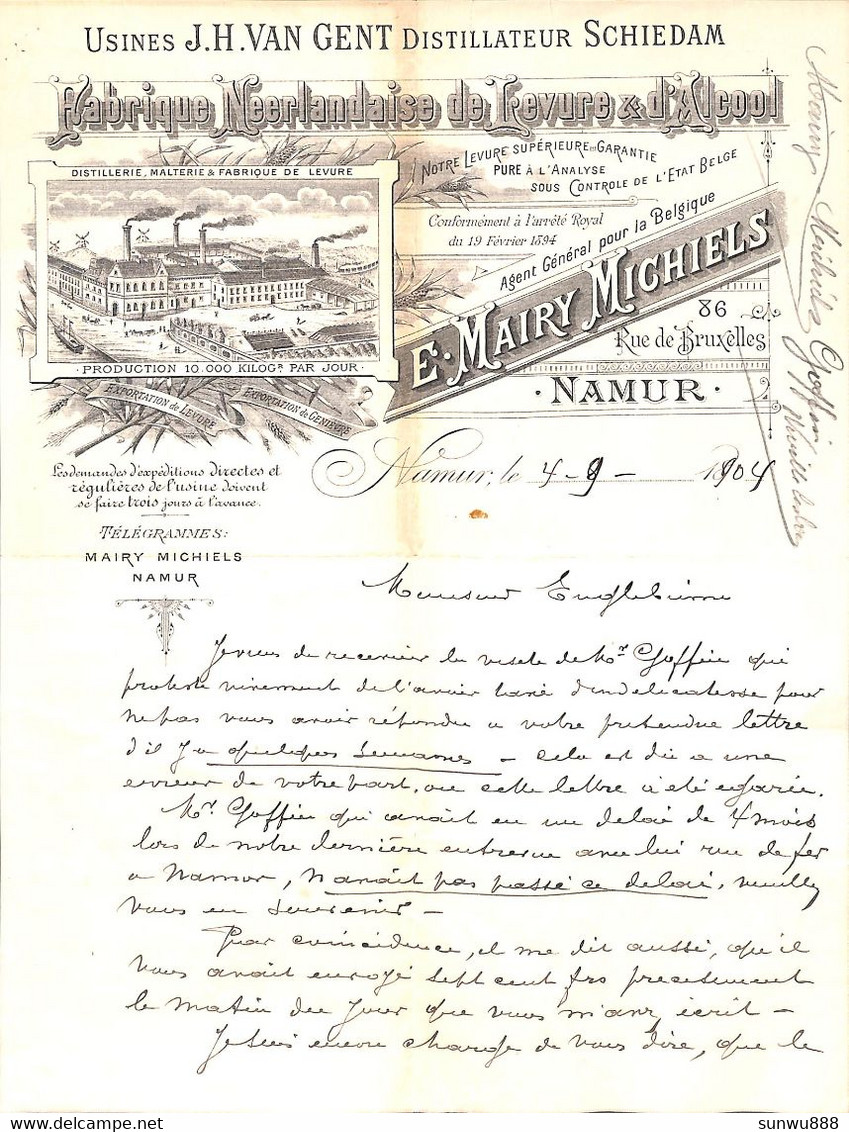 USINES J.H. VAN GENT DISTILLATEUR SCHIEDAM
Fabrique Néerlandaise de Levure & d'Alcool
DISTILLERIE, MALTERIE & FABRIQUE DE LEVURE
PRODUCTION 10.000 KILOGS PAR JOUR
EXPORTATION de LEVURE
EXPORTATION de GENIÈVRE
NOTRE LEVURE SUPÉRIEURE est GARANTIE
PURE À L'ANALYSE
SOUS CONTROLE DE L'ETAT BELGE
Conformément à l'arrêté Royal
du 19 Février 1894
Agent Général pour la Belgique
E. MAIRY MICHIELS
86
Rue de Bruxelles
NAMUR
Mairy Michiels Goffin
Namur, le 4-9- 1904
Les demandes d'expéditions directes et
régulières de l'usine doivent
se faire trois jours à l'avance.
TÉLÉGRAMMES:
MAIRY MICHIELS
NAMUR
Monsieur Englebienne
Je viens de recevoir la visite de Mr. Goffin qui
proteste vivement de l'avoir taxé d'indelicatesse pour
ne pas vous avoir répondu a votre pretendue lettre
d'il y a quelques semaines - cela est dû a une
erreur de votre part, ou cette lettre a été egarée.
Mr. Goffin qui avait eu un delai de 4 mois
lors de notre dernière entrevue avec lui rue de fer
a Namur, n'avait pas passé ce delai, veuillez
vous en souvenir -
Par coincidence, il me dit aussi, qu'il
vous avait envoyé sept cent frs precisement
le matin du jour que vous m'avez écrit -
Je suis encore chargé de vous dire, que le
sunwu888